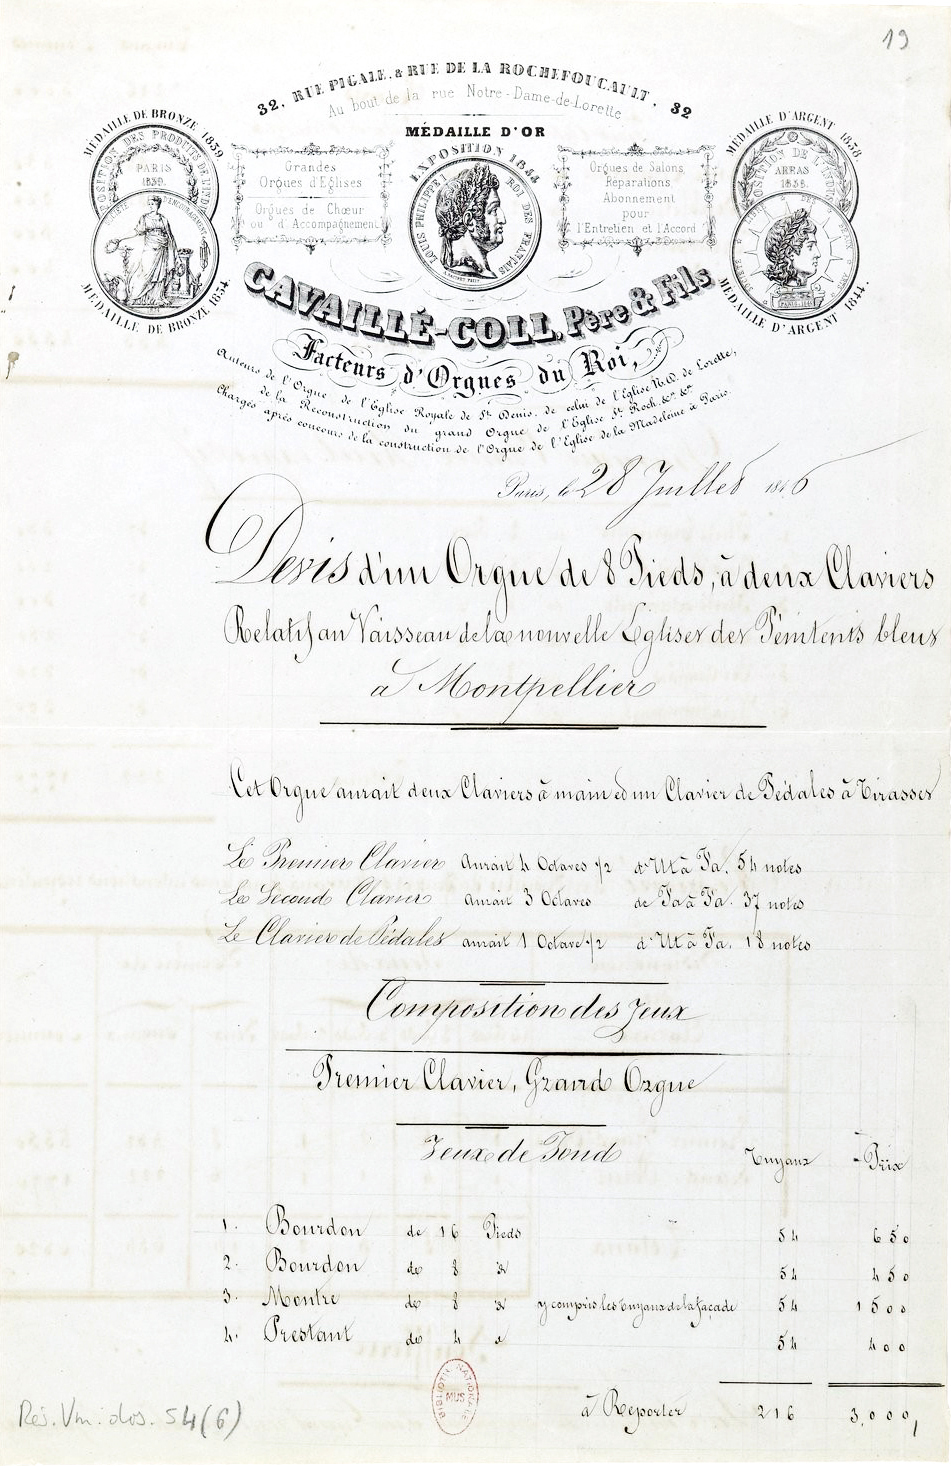 19
32. RUE PIGALE, & RUE DE LA ROCHEFOUCAULT. 32
Au bout de la rue Notre-Dame-de-Lorette
MÉDAILLE D'OR
EXPOSITION 1844
LOUIS PHILIPPE I ROI DES FRANÇAIS
MÉDAILLE DE BRONZE 1839
EXPOSITION DES PRODUITS DE L'INDUSTRIE
PARIS
1839
MÉDAILLE DE BRONZE 1834
Grandes
Orgues d'Eglises
Orgues de Chœur
ou d'Accompagnement
Orgues de Salons
Réparations
Abonnement
pour
l'Entretien et l'Accord
MÉDAILLE D'ARGENT 1838
EXPOSITION DE L'INDUSTRIE
ARRAS
1838.
MÉDAILLE D'ARGENT 1844.
CAVAILLÉ-COLL, Père & Fils
Facteurs d'Orgues du Roi,
Auteurs de l'Orgue de l'Eglise Royale de St. Denis, de celui de l'Eglise N.D. de Lorette,
de la Reconstruction du grand Orgue de l'Eglise St. Roch &a. &a.
Chargés après concours de la construction de l'Orgue de l'Eglise de la Madeleine à Paris.
Paris, le 28 Juillet 1846
Devis d'un Orgue de 8 Pieds, à deux Claviers
Relatif au Vaisseau de la nouvelle Eglise des Pénitents bleus
à Montpellier
Cet Orgue aurait deux Claviers à main et un Clavier de Pédales à Tirasses
Le Premier Clavier aurait 4 Octaves 1/2 d'Ut à Fa. 54 notes
Le Second Clavier aurait 3 Octaves de Fa à Fa. 37 notes
Le Clavier de Pédales aurait 1 Octave 1/2 d'Ut à Fa. 18 notes
Composition des Jeux
Premier Clavier, Grand Orgue
Jeux de Fond Tuyaux Prix
1. Bourdon de 16 Pieds 54 650
2. Bourdon de 8 d° 54 450
3. Montre de 8 d° y compris les tuyaux de la façade 54 1500
4. Prestant de 4 d° 54 400
à Reporter 216 3,000,
BIBLIOTH. NATIONALE
MUS
Rés. Vm. dos. 54 (6)